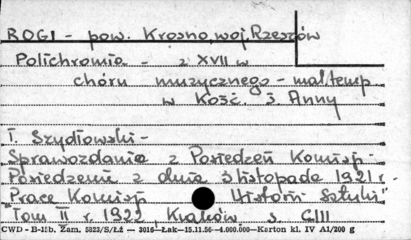 ROGI - pow. Krosno, woj. Rzeszów
Polichromia - z XVII w
chóru muzycznego - mal. temp
w Kość. ś. Anny
T. Szydłowski -
Sprawozdanie z Posiedzeń Komisji -
Posiedzenie z dnia 3 listopada 1921 r -
"Prace Komisji Historii Sztuki"
Tom II r. 1922, Kraków s. CIII
CWD - B-15b. Zam. 5823/S/ŁŻ — 3016—Łak—15.11.56—4.000.000—Karton kl. IV A1/200 g